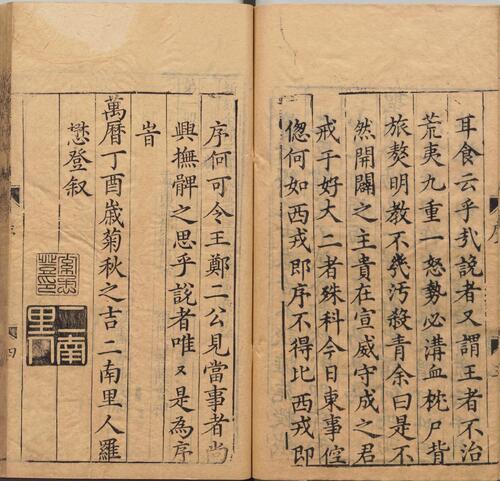 耳食云乎㢤說者又謂王者不治
荒夷九重一怒勢必溝血枕尸背
旅獒明教不幾汚殺青余曰是不
然開闢之主貴在宣威守成之君
戒于好大二者殊科今日東事倥
偬何如西戎即序不得比西戎即
序何可令王鄭二公見當事者尚
興撫髀之思乎說者唯〻是為序
旹
萬曆丁酉歲菊秋之吉二南里人羅
懋登叙
二南里人
四